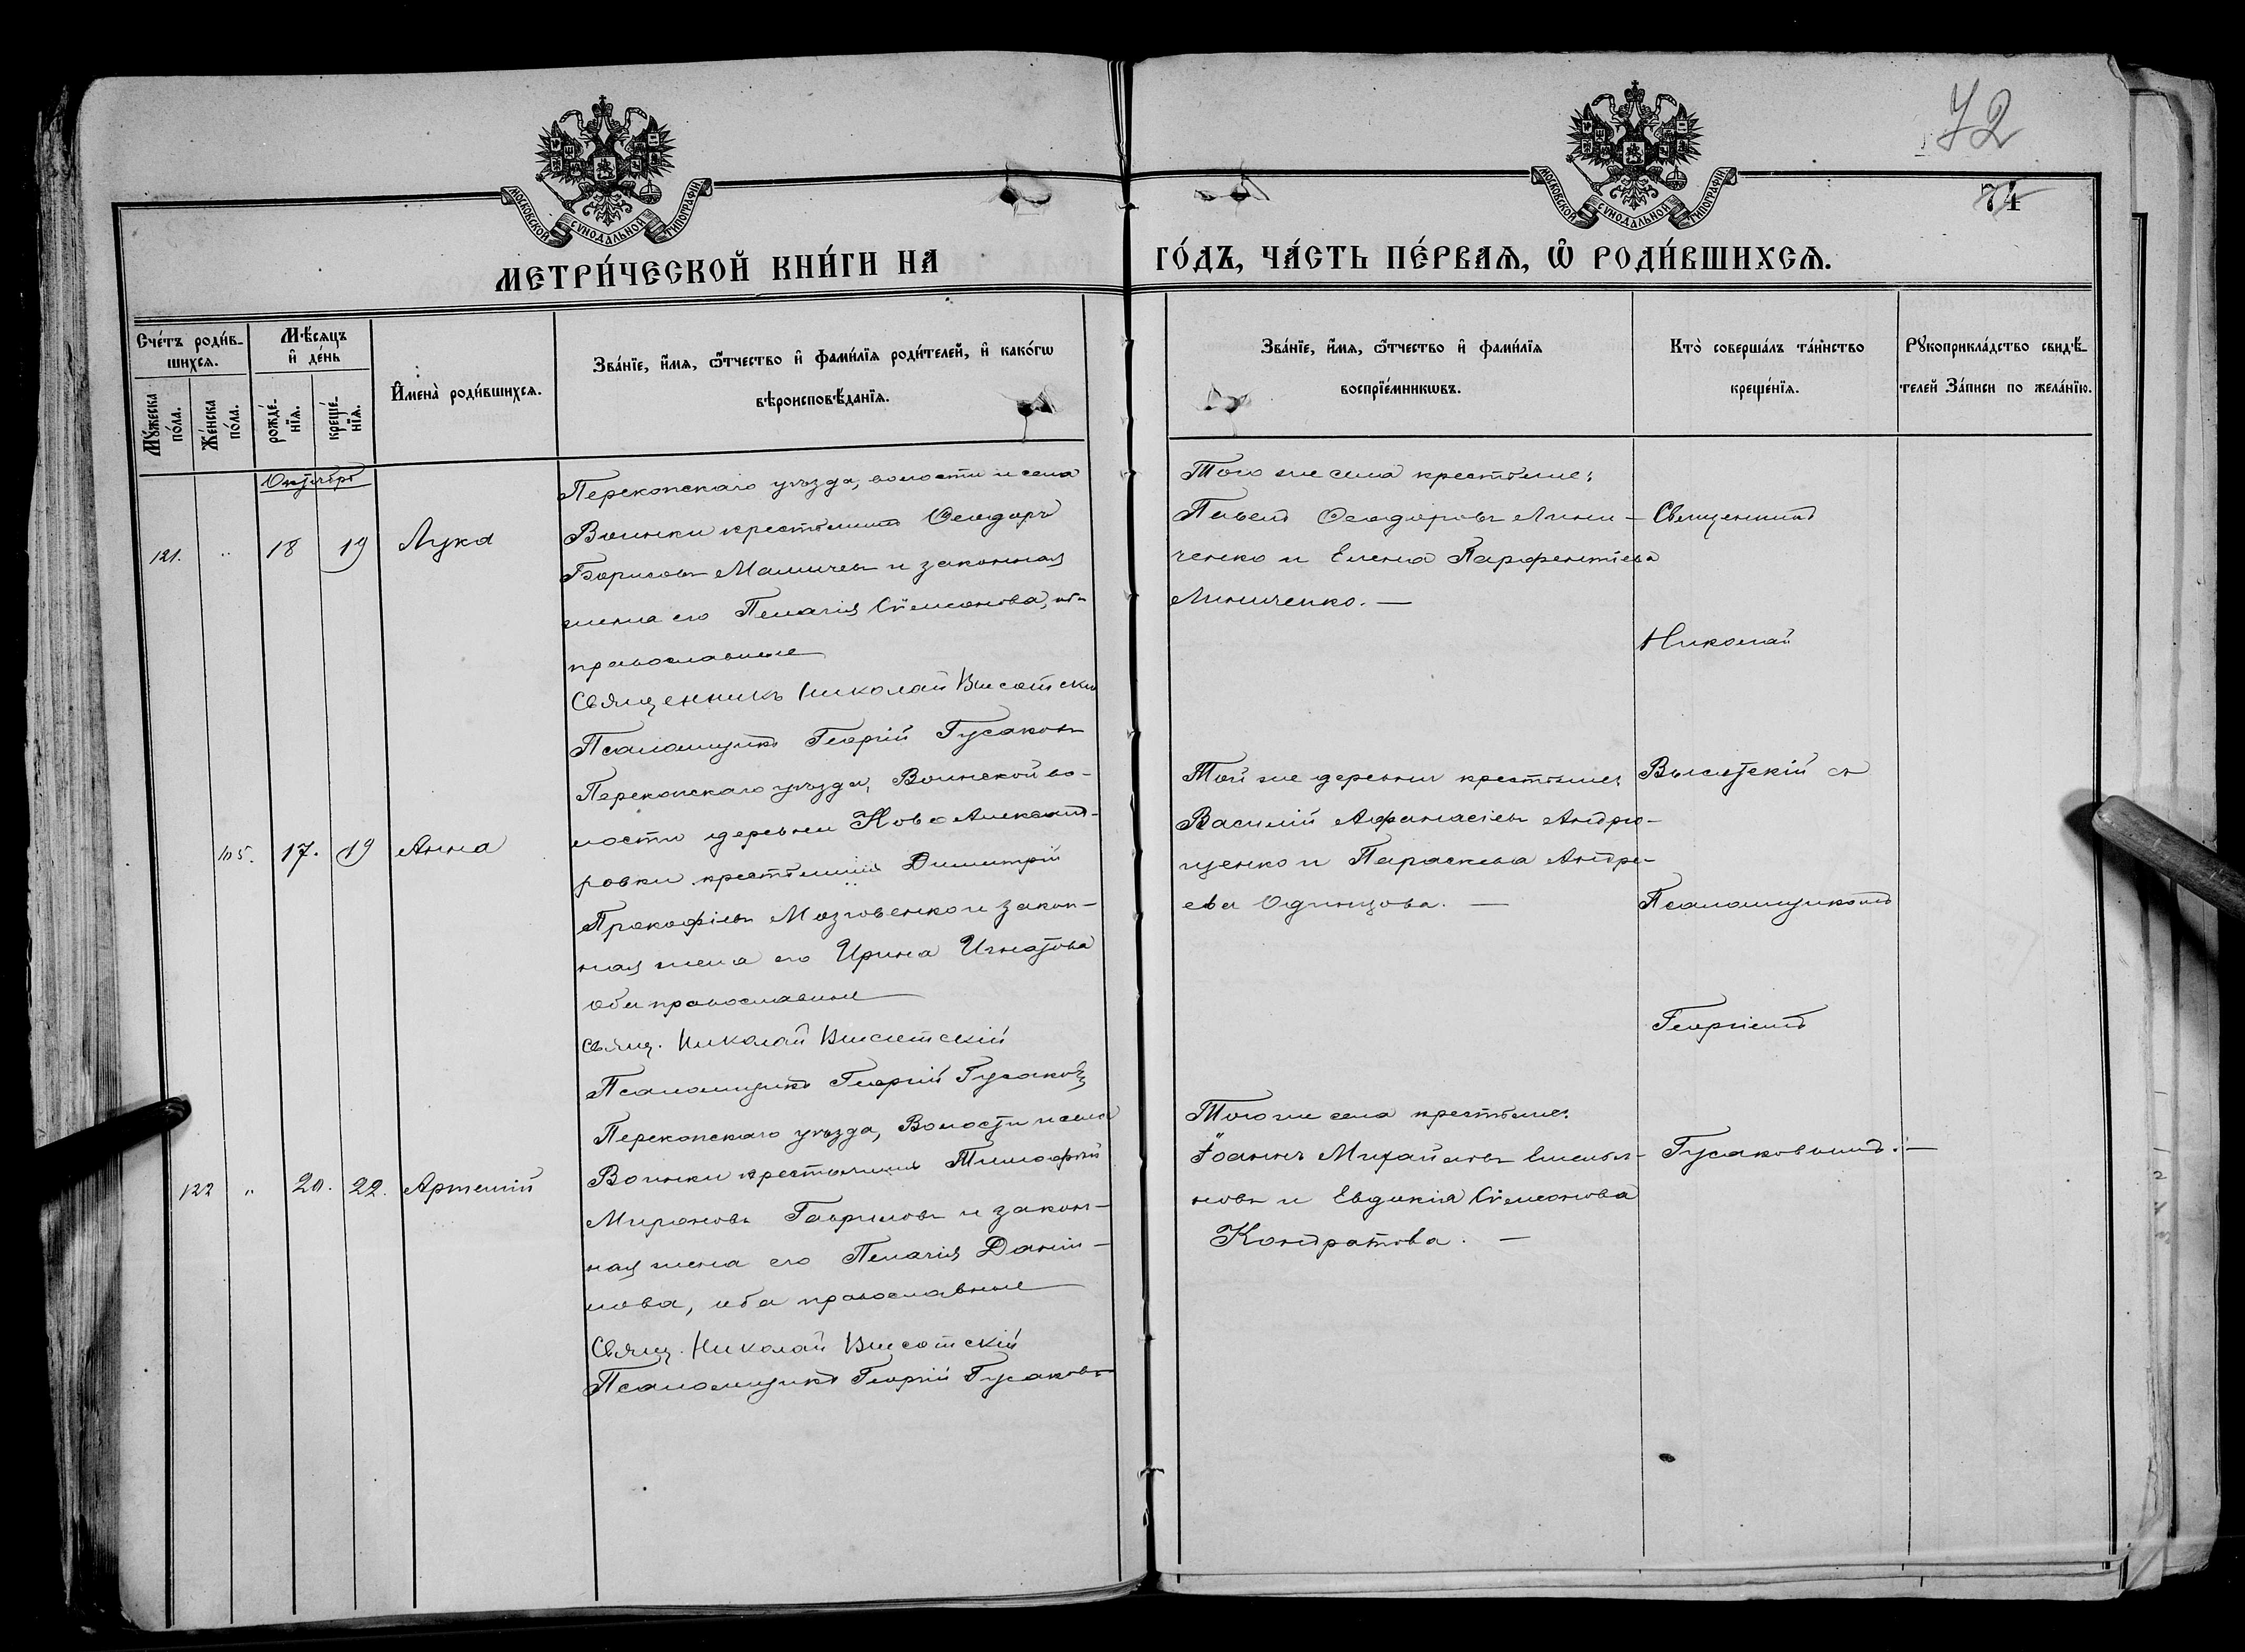 72
74
МОСКОВСКОЙ СѴНОДАЛЬНОЙ ТИПОГРАФІИ
МОСКОВСКОЙ СѴНОДАЛЬНОЙ ТИПОГРАФІИ
МЕТРИ́ЧЕСКОЙ КНИ́ГИ НА ГО́ДЪ, ЧА́СТЬ ПЕ́РВАѦ, Ѡ҆ РОДИ́ВШИХСѦ.
Сче́тъ роди́в-
шихсѧ.
Мꙋ́жеска по́ла.
Же́нска по́ла.
Мѣ́сѧцъ
и҆ де́нь
рожде́-нїѧ.
креще́-нїѧ.
И҆мена̀ роди́вшихсѧ.
Зва́нїе, и҆́мѧ, ѻ҆́тчество и҆ фами́лїѧ роди́телей, и҆ како́гѡ
вѣроисповѣ́данїѧ.
Зва́нїе, и҆́мѧ, ѻ҆́тчество и҆ фами́лїѧ
воспрїе́мникѡвъ.
Кто̀ соверша́лъ та́инство
креще́нїѧ.
Рꙋкоприкла́дство свидѣ́-
телей за́писи по жела́нїю.
Октябрь
121. " 18 19 Лука
Перекопскаго уѣзда, волости и села
Воинки крестьянинъ Ѳеодоръ
Борисовъ Мамичевъ и законная
жена его Пелагія Сѷмеонова, оба
православные
Священникъ Николай Высотскій
Псаломщикъ Георгій Гусаковъ
Того же села крестьяне:
Павелъ Ѳеодоровъ Лини-
ченко и Елена Парфентіева
Линиченко. —
105. 17. 19 Анна
Перекопскаго уѣзда, Воинской во-
лости деревни Ново Александ-
ровки крестьянинъ Димитрій
Прокофіевъ Мозговенко и закон-
ная жена его Ирина Игнатова
оба православные
Свящ. Николай Высотскій
Псаломщикъ Георгій Гусаковъ
Той же деревни крестьяне:
Василій Аѳанасіевъ Андрю-
щенко и Параскева Андре-
ева Одинцова. —
122 " 20. 22. Артемій
Перекопскаго уѣзда, Волости и села
Воинки крестьянинъ Тимофей
Мироновъ Гавриловъ и закон-
ная жена его Пелагія Дані-
лова, оба православные
Свящ. Николай Высотскій
Псаломщикъ Георгій Гусаковъ
Того же села крестьяне:
Іоаннъ Михайловъ Емелья-
новъ и Евдокія Сѷмеонова
Кондратова. —
Священникъ
Николай
Высотскій съ
Псаломщикомъ
Георгіемъ
Гусаковымъ. —